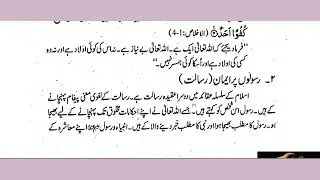 كُفُوًا أَحَدٌ (الاخلاص:1-4)
”فرما دیجئے کہ اللہ تعالیٰ ایک ہے۔ اللہ تعالیٰ بے نیاز ہے۔ نہ اس کی کوئی اولاد ہے اور نہ وہ
کسی کی اولاد ہے اور نہ اُسکا کوئی ہمسر نہیں ہے۔“
۲۔ رسولوں پر ایمان (رسالت)
اسلام کے سلسلہ عقائد میں دوسرا عقیدہ رسالت ہے۔ رسالت کے لغوی معنی پیغام پہنچانے
کے ہیں۔ رسول اس شخص کو کہتے ہیں۔ جسے اللہ تعالیٰ نے اپنے احکامات مخلوق تک پہنچانے کے لیے بھیجا
ہو۔ رسول کا مطلب بھیجا ہوا اور نبی کا مطلب خبر دینے والا کے ہیں۔ انبیاء و رسول اپنے معاشرہ کے